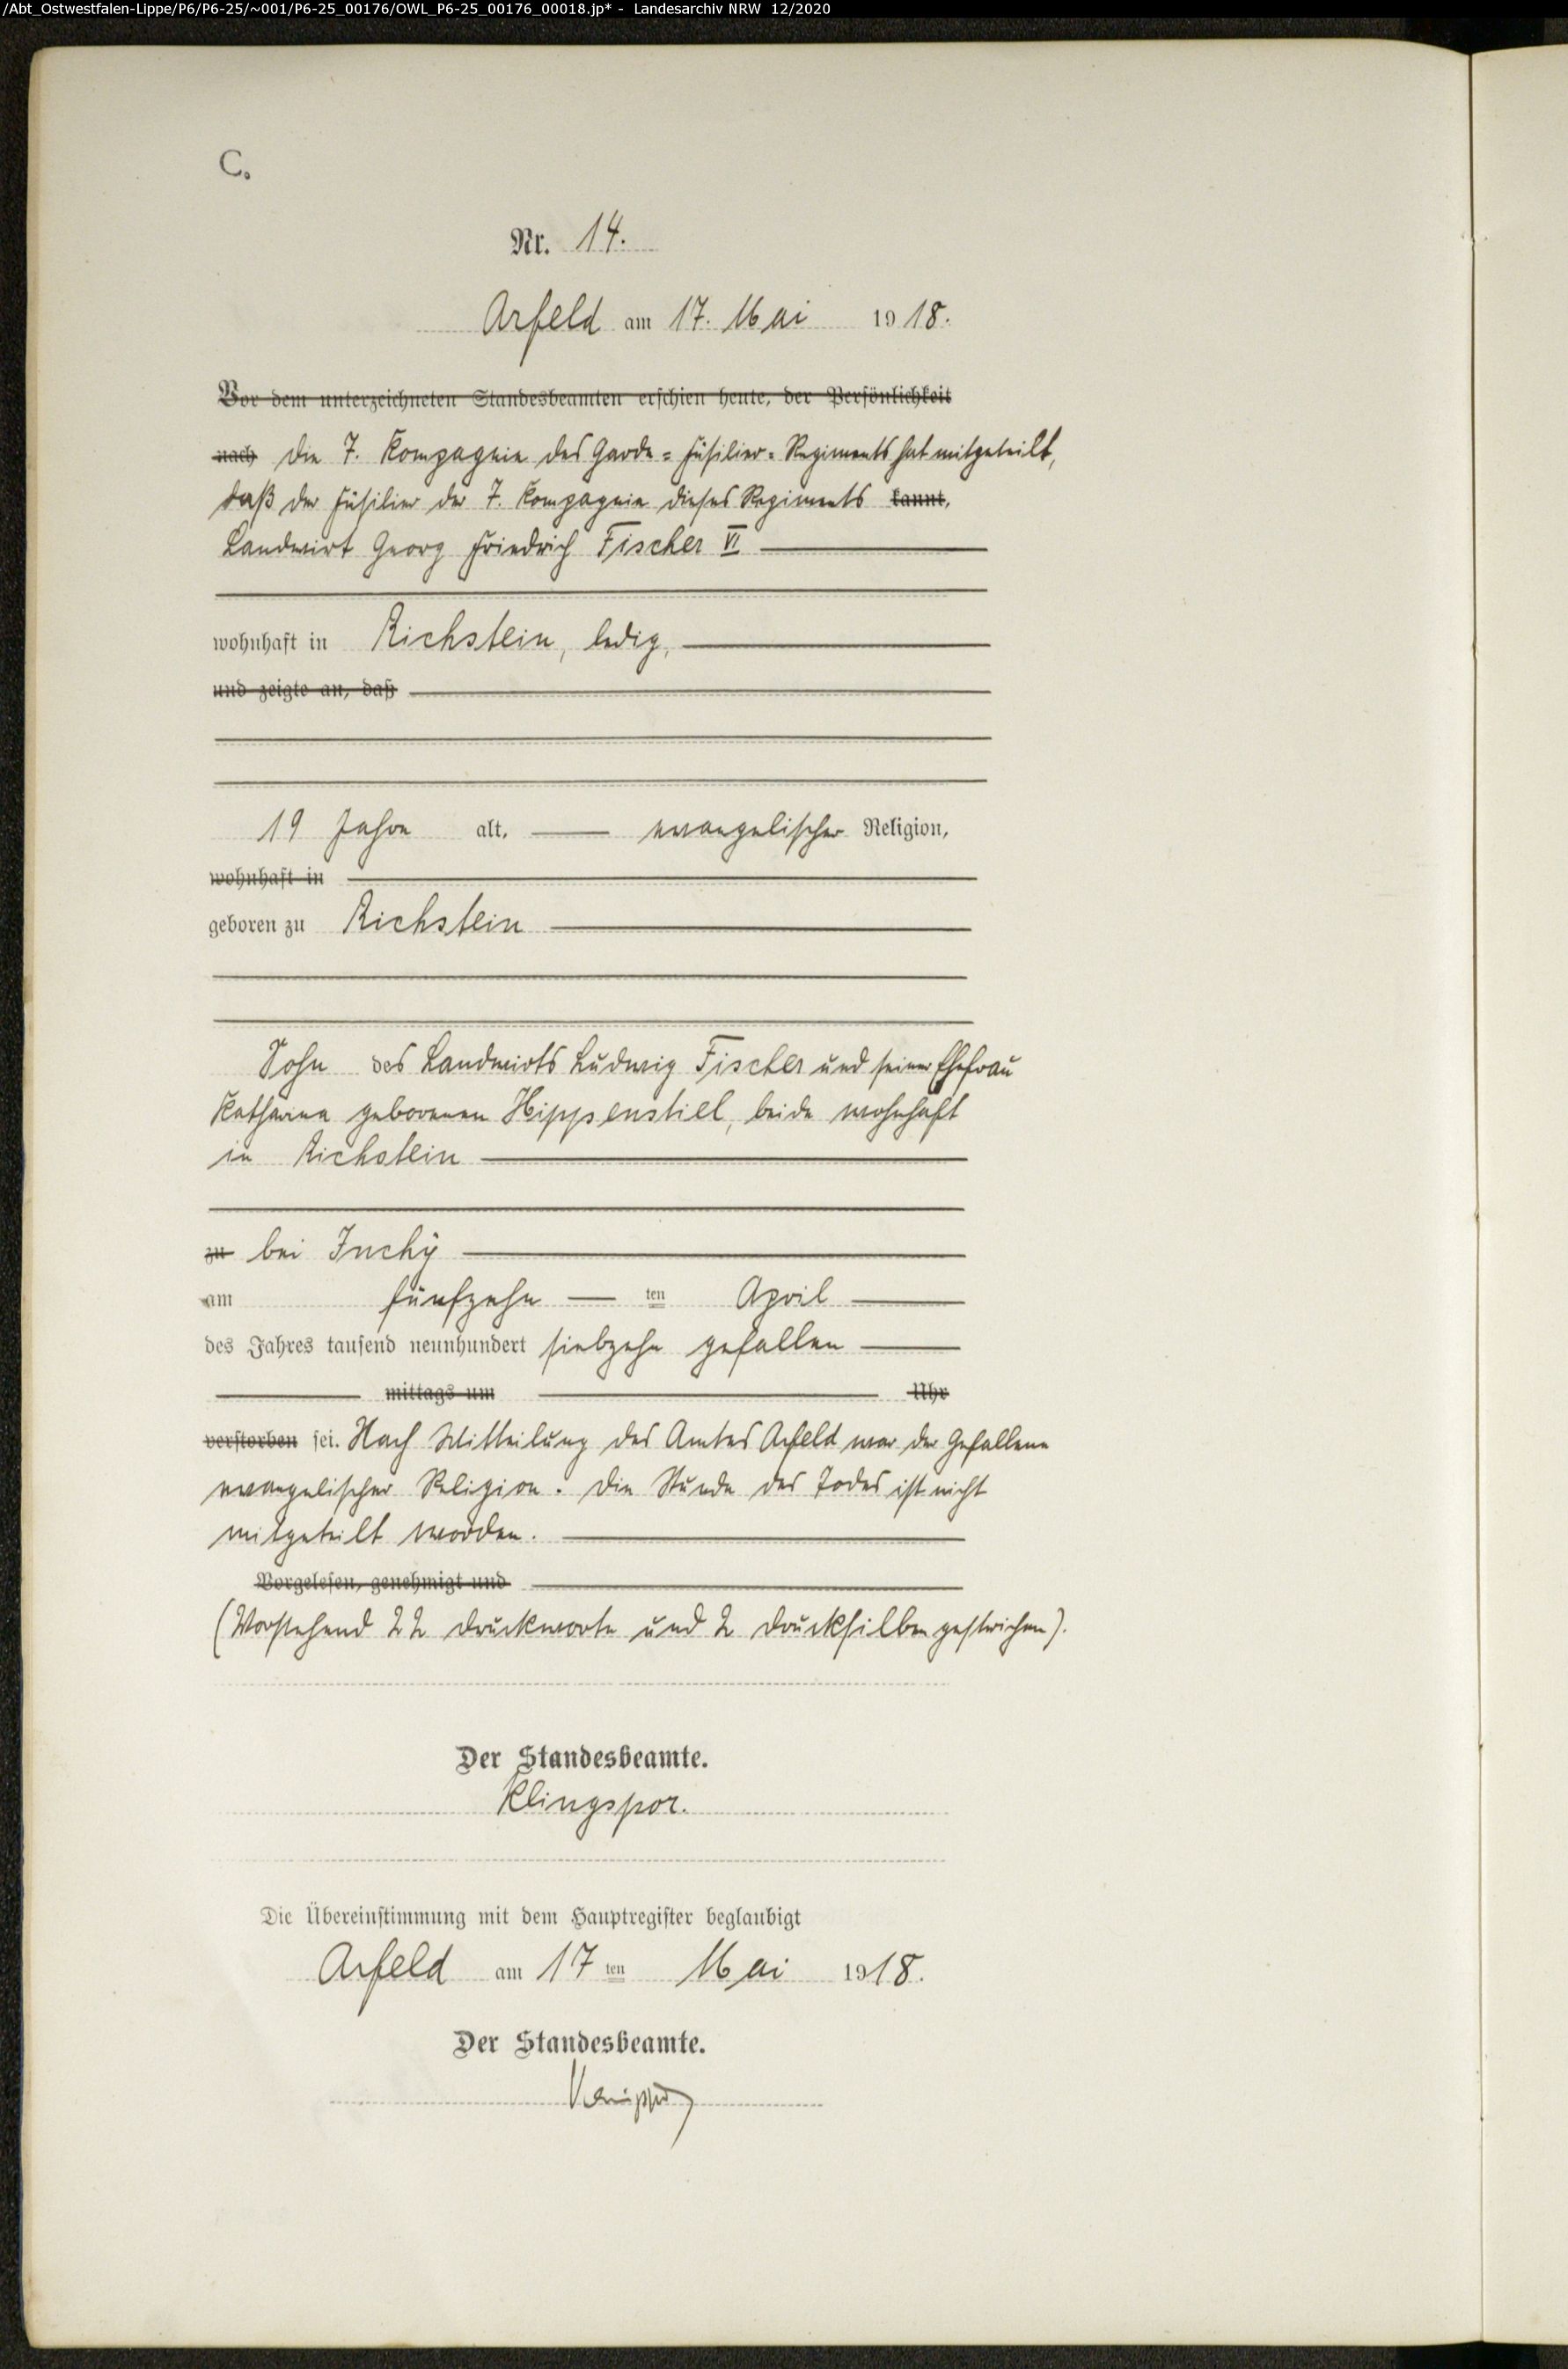 /Abt_Ostwestfalen-Lippe/P6/P6-25/~001/P6-25_00176/OWL_P6-25_00176_00018.jp* - Landesarchiv NRW 12/2020
C.
Nr. 14.
Arfeld am 17. Mai 1918.
Vor dem unterzeichneten Standesbeamten erschien heute, der Persönlichkeit
nach Die 7. Kompagnie des Garde=Füsilier=Regiments hat mitgeteilt,
daß der Füsilier der 7. Kompagnie dieses Regiments kannt,
Landwirt Georg Friedrich Fischer VI
wohnhaft in Richstein, ledig,
und zeigte an, daß
19 Jahre alt, evangelischer Religion,
wohnhaft in
geboren zu Richstein
Sohn des Landwirts Ludwig Fischer und seiner Ehefrau
Katharina geborenen Hippenstiel, beide wohnhaft
in Richstein
zu bei Inchy
am fünfzehn ten April
des Jahres tausend neunhundert siebzehn gefallen
mittags um Uhr
verstorben sei. Nach Mitteilung des Amtes Arfeld war der Gefallene
evangelischer Religion. Die Stunde des Todes ist nicht
mitgeteilt worden.
Vorgelesen, genehmigt und
(Vorstehend 22 Druckworte und 2 Drucksilben gestrichen).
Der Standesbeamte.
Klingspor.
Die Übereinstimmung mit dem Hauptregister beglaubigt
Arfeld am 17 ten Mai 1918.
Der Standesbeamte.